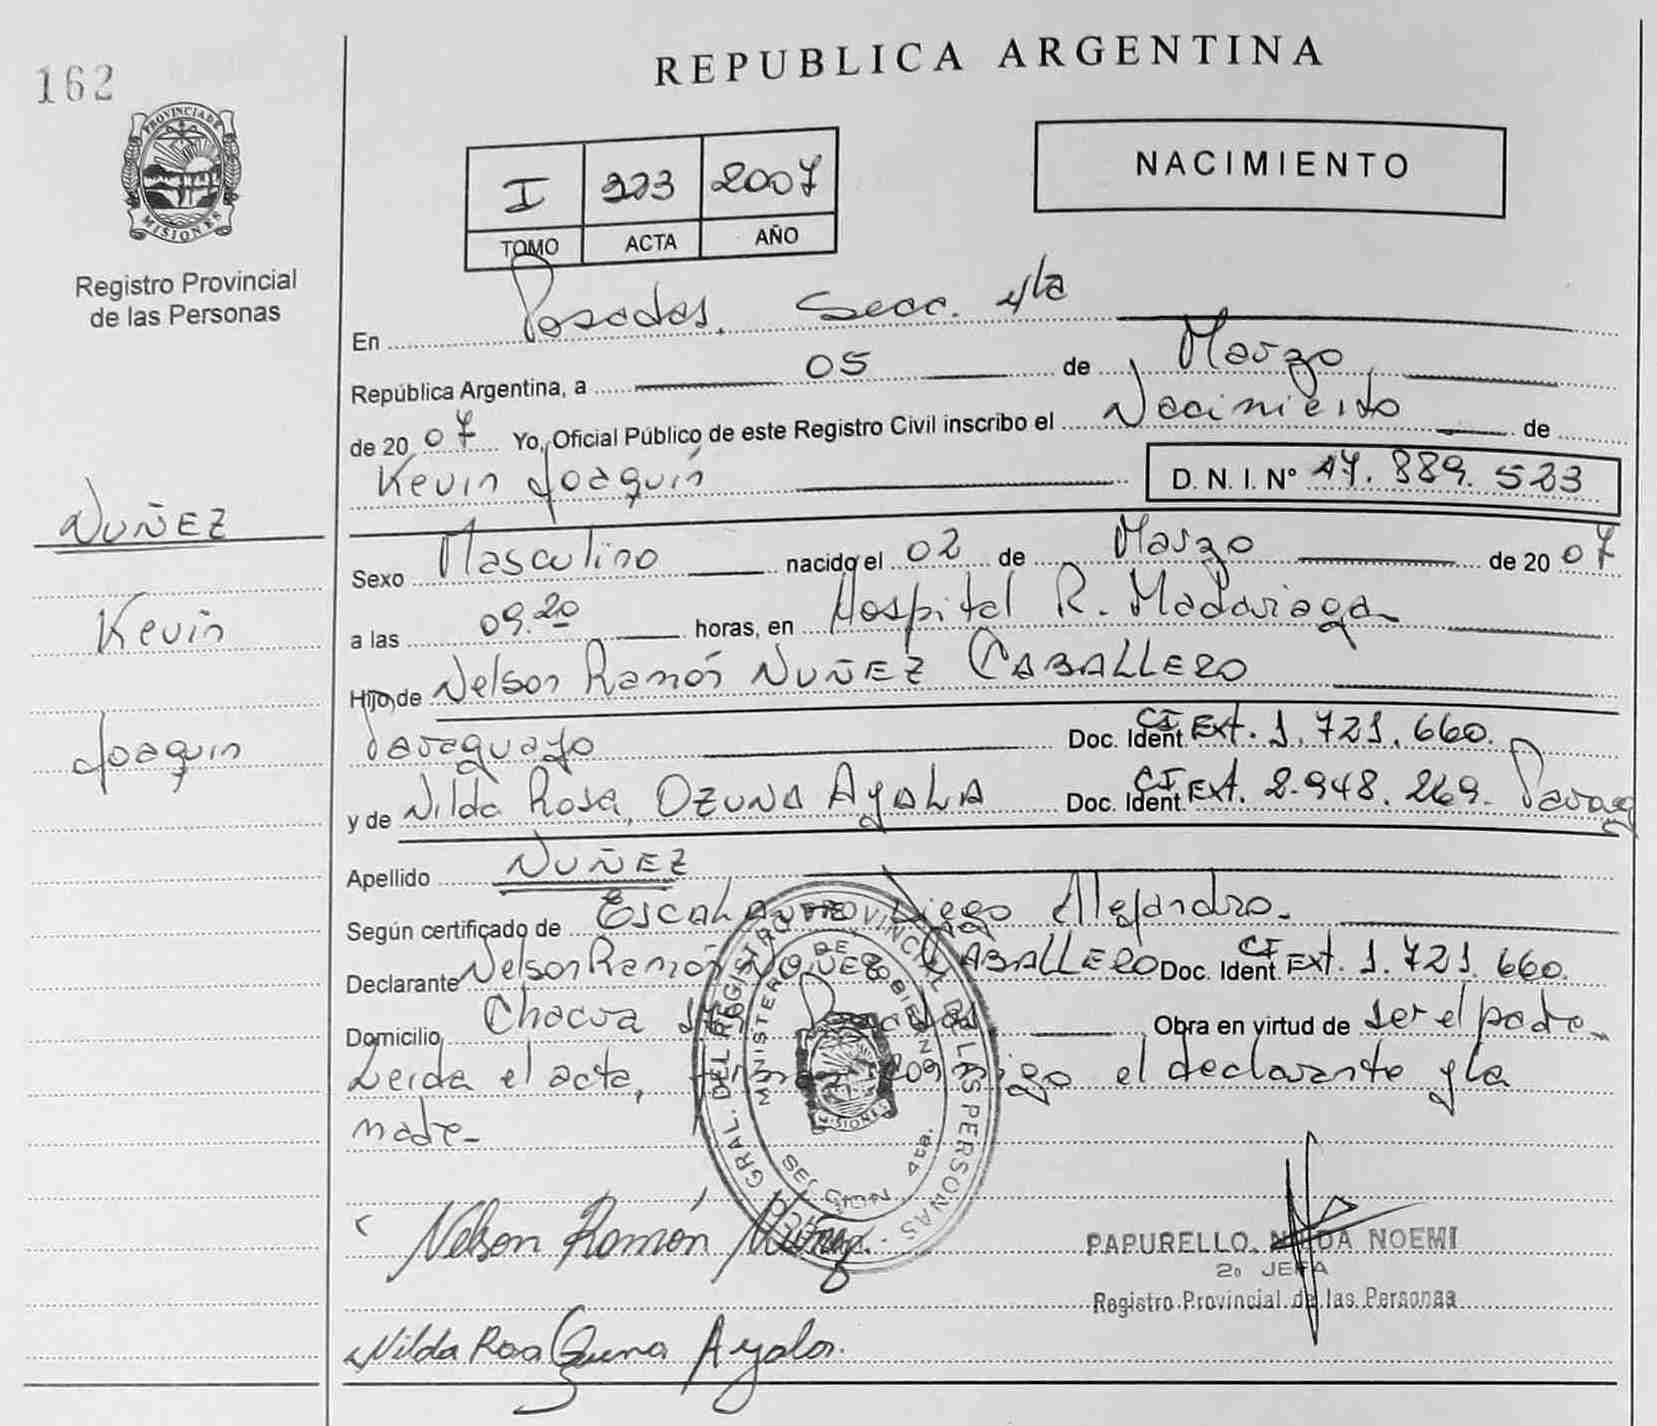 162
REPUBLICA ARGENTINA
PROVINCIA DE
MISIONES
Registro Provincial
de las Personas
I 223 2007
TOMO ACTA AÑO
NACIMIENTO
En Posadas. Secc. 4ta
República Argentina, a 05 de Marzo
de 2007 Yo, Oficial Público de este Registro Civil inscribo el Nacimiento de
Kevin Joaquín D. N. I. Nº 47.889.523
NUÑEZ
Kevin
Joaquín
Sexo Masculino nacido el 02 de Marzo de 2007
a las 09.20 horas, en Hospital R. Madariaga
Hijo de Nelson Ramón NUÑEZ CABALLERO
Paraguayo Doc. Ident. CI Ext. 1.721.660.
y de Nilda Rosa, OZUNA AYALA Doc. Ident. CI Ext. 2.948.269. Parag
Apellido NUÑEZ
Según certificado de Escalante Diego Alejandro.
Declarante Nelson Ramón NUÑEZ CABALLERO Doc. Ident. CI Ext. 1.721.660.
Domicilio Chacra Posadas. Obra en virtud de ser el padre
Leida el acta, firman conmigo el declarante y la
madre
GRAL. DEL REGISTRO PROVINCIAL DE LAS PERSONAS
MINISTERIO DE GOBIERNO
SECCION 4ta.
MISIONES
Nelson Ramón Núñez.
PAPURELLO, NILDA NOEMI
2º JEFA
Registro Provincial de las Personas
Nilda Rosa Ozuna Ayala.